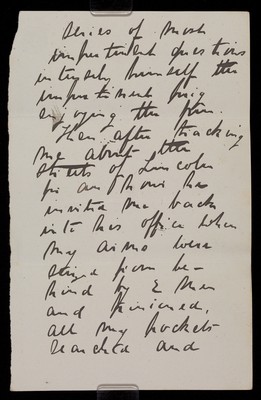 series of most
impertinent questions
in truly himself the
impertinent prig
enjoying the fun.
Then after tracking
me about the
streets of Lincoln
for an hour he
invited me back
into his office when
my arms were
seized from be-
hind by 2 men
and pinioned,
all my pockets
searched and